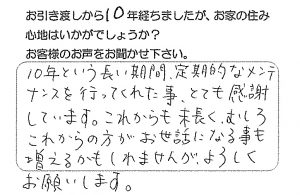 お引き渡しから10年経ちましたが、お家の住み
心地はいかがでしょうか？
お客様のお声をお聞かせ下さい。
10年という長い期間、定期的なメンテ
ナンスを行ってくれた事、とても感謝
しています。これからも末長く、むしろ
これからの方がお世話になる事も
増えるかもしれませんが、よろしく
お願いします。